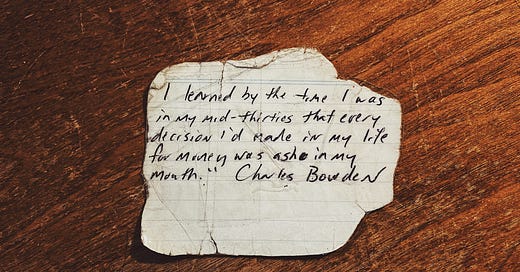 I learned by the time I was
in my mid-thirties that every
decision I'd made in my life
for money was ash in my
mouth." Charles Bowden